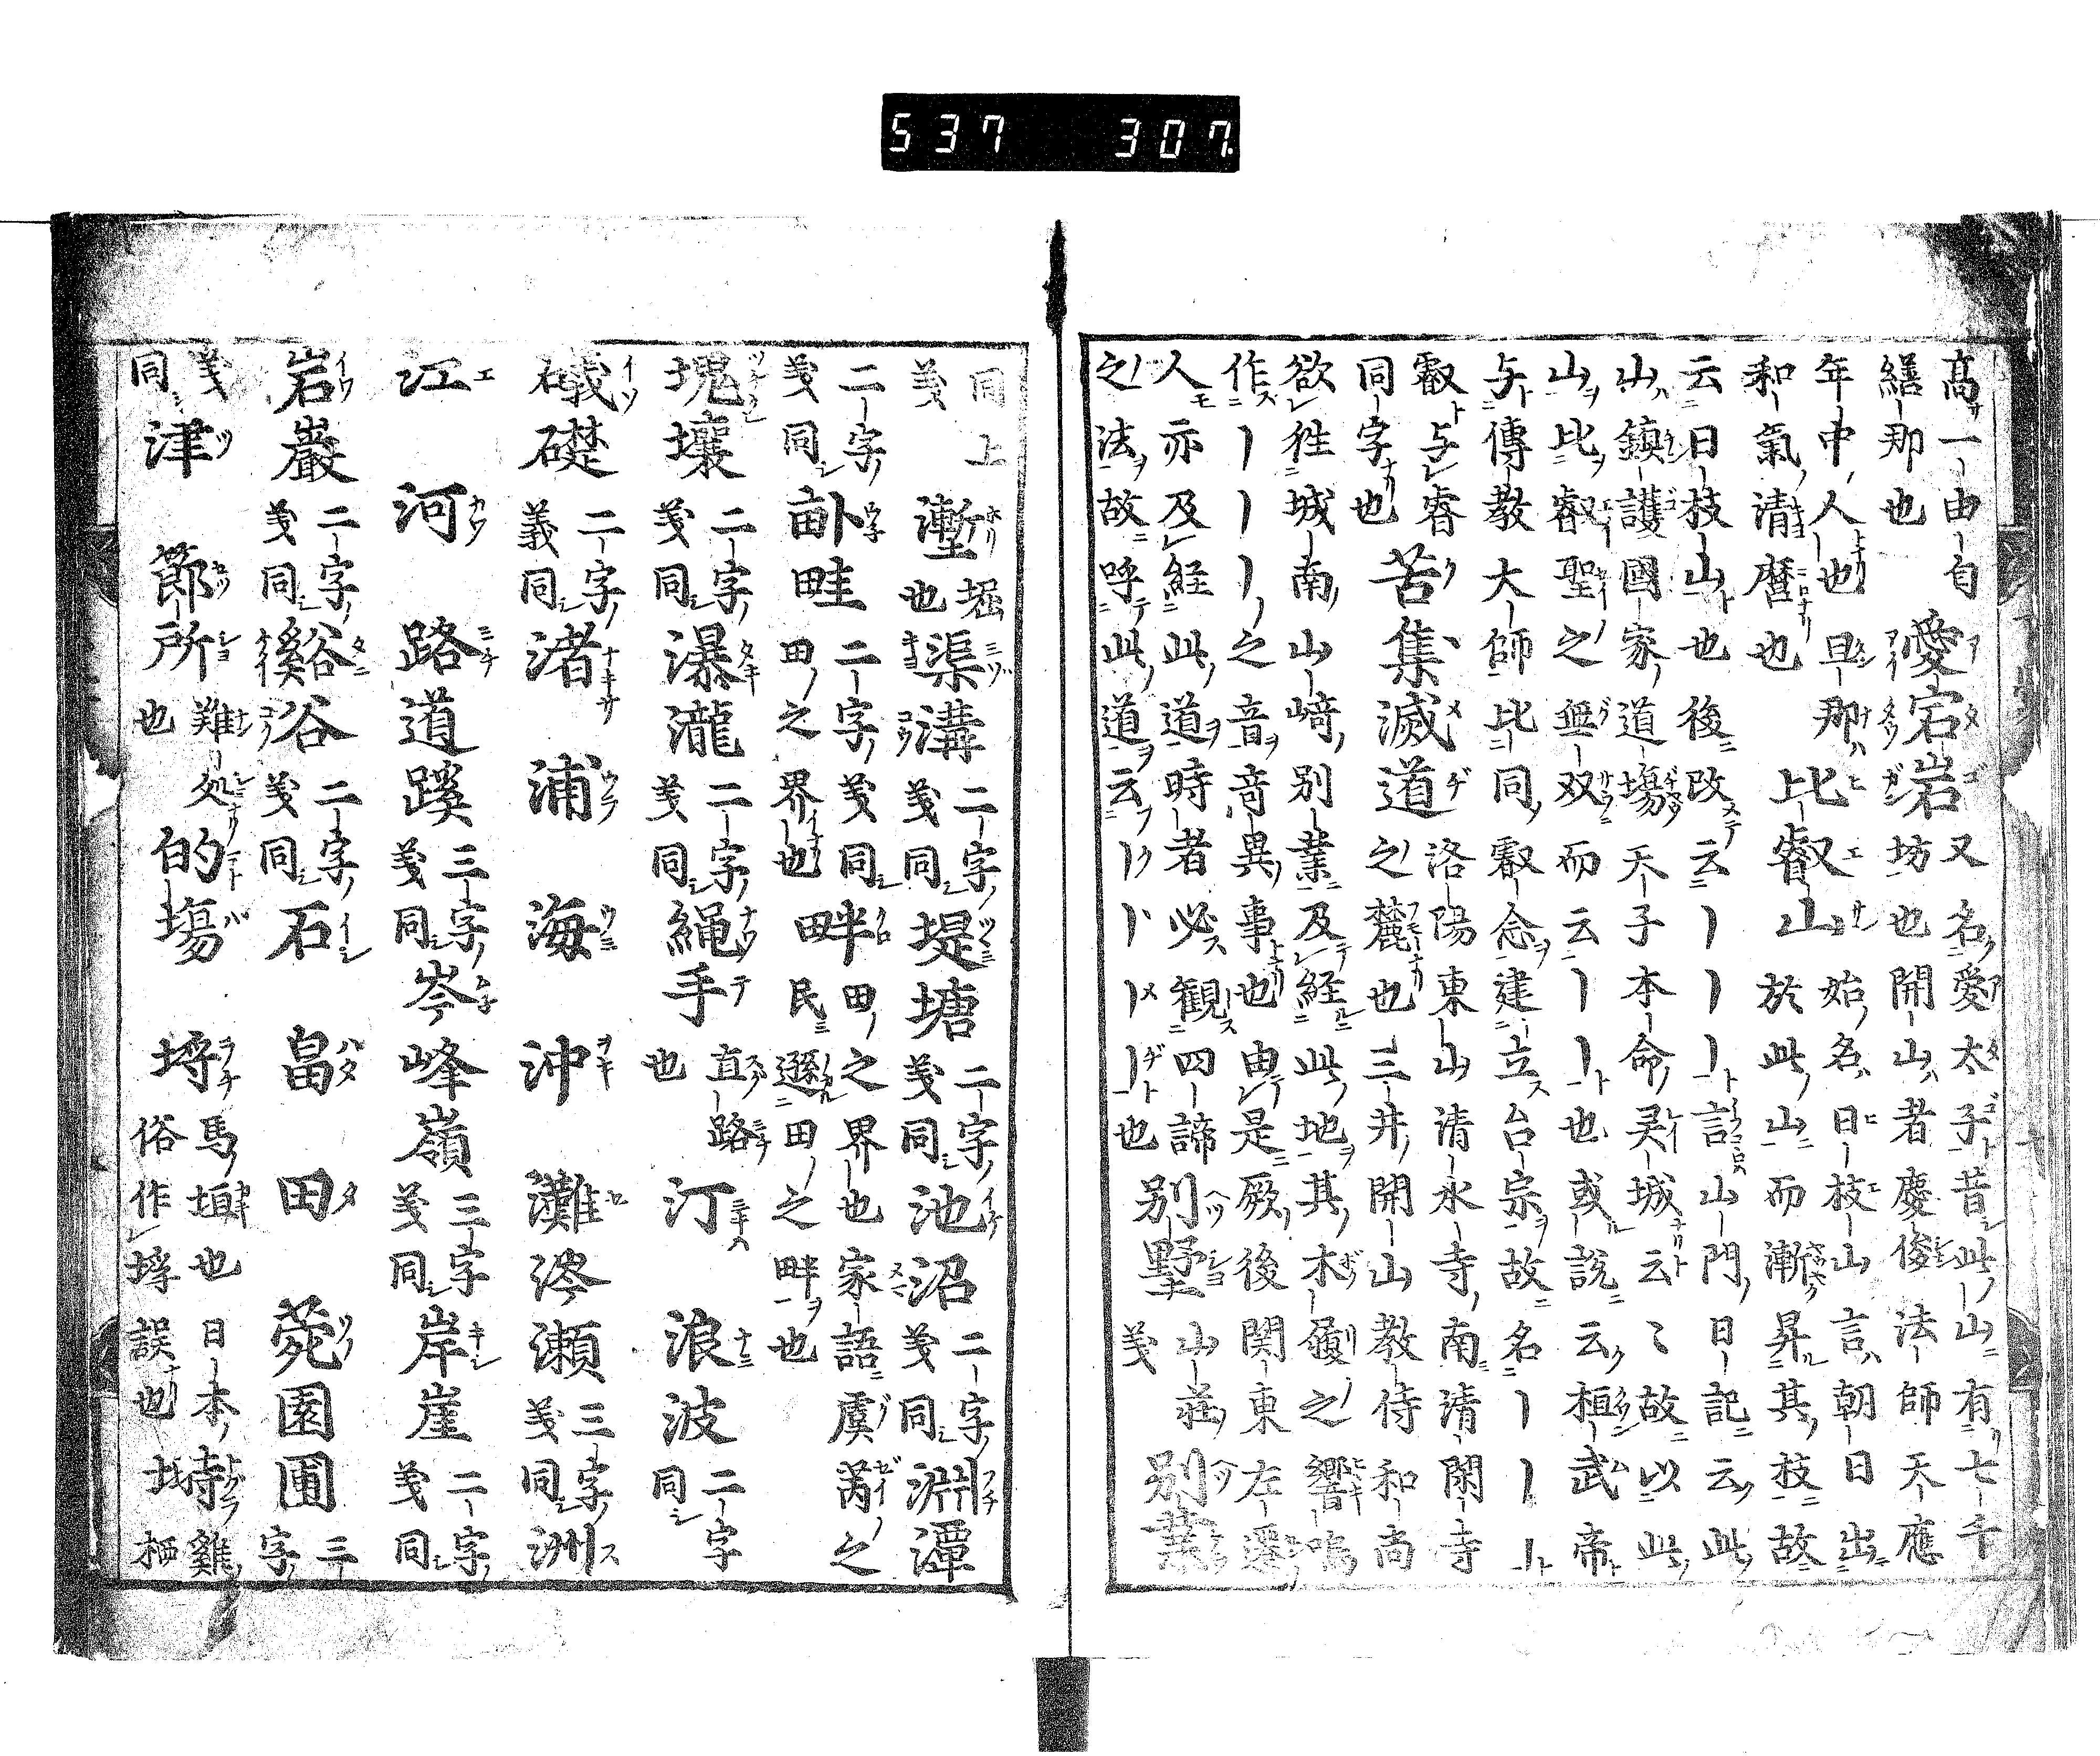 537 307.
高一由自
繕那也
愛宕岩
又名愛太子昔此山有七千
坊也開山者慶俊法師天應
年中人也旦那
比叡山
始名日枝山言朝日出
和氣清麿也
於此山而漸昇其枝故
云日枝山也後改云〡〡〡言山門日記云此
山鎮護國家道場天子本命灵城云〻故以此
山比叡聖之無双而云〡〡也或説云桓武帝
与傳教大師比同叡念建立台宗故名〡〡〡
叡与睿
同字也
苦集滅道
洛陽東山清水寺南清閑寺
之麓也三井開山教侍和尚
欲徃城南山﨑別業及経此地其木履之響嗚
作〡〡〡之音竒異事也由是厥後関東左遷
人亦及経此道時者必観四諦
之法故呼此道云〡〡〡〡也
別墅
山莊
義
別業
同上
義
塹
堀
也
渠溝
二字
義同
堤塘
二字
義同
池沼
二字
義同
淵潭
二字
義同
畝畦
二字義同
田之界也
畔
田之界也家語虞芮之
民遜田之畔也
塊壤
二字
義同
瀑瀧
二字
義同
繩手
直路
也
汀
浪波
二字
同
磯礎
二字
義同
渚
浦
海
沖
灘澪瀬
三字
義同
洲
江
河
路道蹊
三字
義同
岑峰嶺
三字
義同
岸崖
二字
義同
岩巖
二字
義同
谿谷
二字
義同
石
畠
田
菀園圃
三
字
義
同
津
節所
難処
也
的場
埒
馬垣也日本
俗作埓誤也
塒
雞
栖